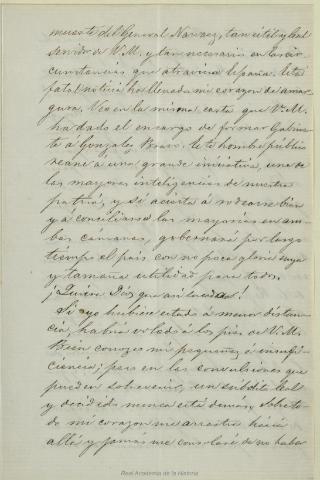 muerte del General Narvaez, tan util y leal
servidor de V.M. y tan necesario en las cir-
cunstancias que atraviesa España. Esta
fatal noticia ha llenado mi corazon de amar-
gura. Veo en la misma carta que V.M.
ha dado el encargo de formar Gabine-
te á Gonzalez Bravo. Este hombre público
reune á una grande iniciativa, una de
las mayores inteligencias de nuestra
patria, y si acierta á rodearse bien
y á conciliarse las mayorias en am-
bas cámaras, gobernará por largo
tiempo el pais con no poca gloria suya
y tamaña utilidad para todos.
¡Quiera Dios que asi suceda!
Si yo hubiese estado á menor distan-
cia, habria volado á los pies de V.M.
Bien conozco mi pequeñez é insufi-
ciencia; pero en las convulsiones que
pueden sobrevenir, un súbdito leal
y decidido nunca está demás. Sobre to-
do mi corazon me arrastra hácia
allá y jamás me consolaré de no haber
Real Academia de la Historia